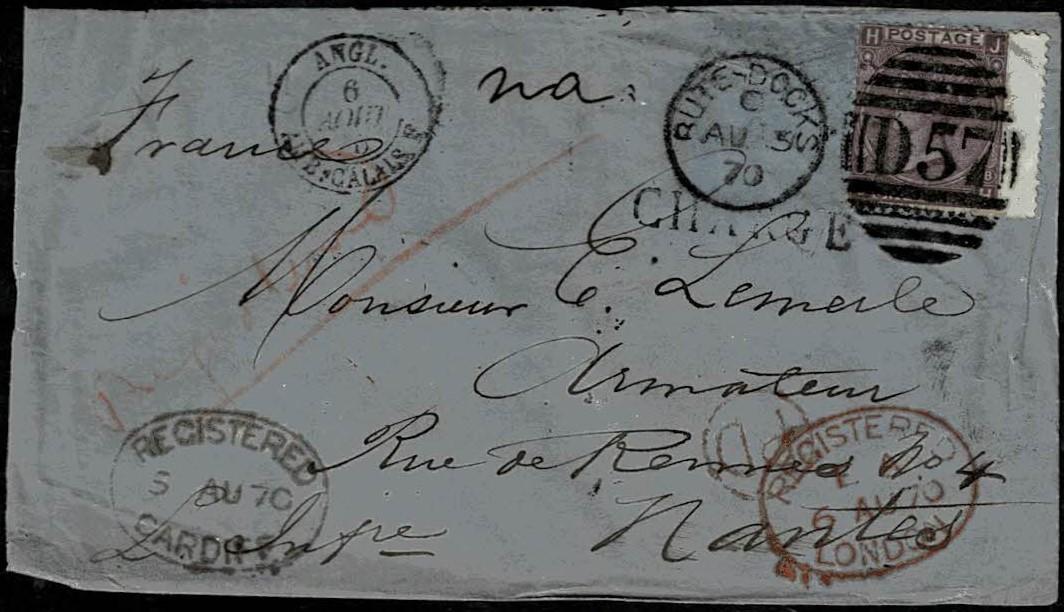 ANGL.
6
AOUT
CALAIS
na.
France
BUTE-DOCKS
C
AU 5
70
H POSTAGE J
D57
CHARGE
Monsieur E. Lemerle
Armateur
Rue de Rennes No 4
Nantes
REGISTERED
5 AU 70
CARDIFF
REGISTERED
6 AU 70
LONDON